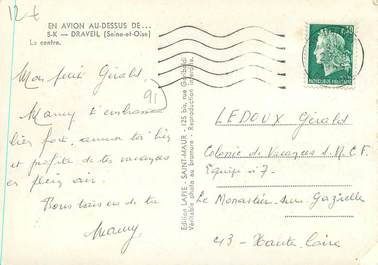 12 €
EN AVION AU-DESSUS DE...
S-K — DRAVEIL (Seine-et-Oise)
Le centre.
Mon petit Gérald,
91
Mamy t'embrasse
bien fort, amuse toi bien
et profite de tes vacances
en plein air.
Bons baisers de ta
Mamy
Edition LAPIE - SAINT-MAUR - 125 bis, rue Garibaldi
Véritable photo au bromure - Reproduction interdite.
0,30
REPUBLIQUE FRANÇAISE
LEDOUX Gérald
Colonie de Vacances
Equipe n°7-
Le Monastier-sur-Gazeille
43 - Haute Loire